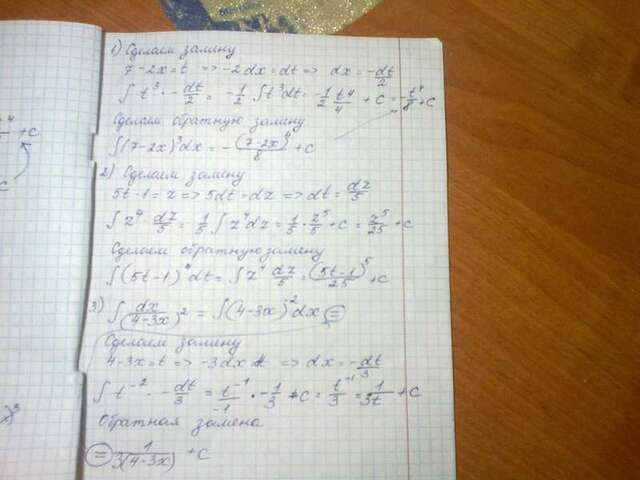 1) Сделаем замену
7-2x=t => -2dx=dt => dx=-dt/2
∫t³·-dt/2=-1/2∫t³dt=-1/2 t⁴/4+C=-t⁴/8+C
Сделаем обратную замену
∫(7-2x)³dx=-(7-2x)⁴/8+C
2) Сделаем замену
5t-1=z=>5dt=dz=>dt=dz/5
∫z⁴·dz/5=1/5∫z⁴dz=1/5·z⁵/5+C=z⁵/25+C
Сделаем обратную замену
∫(5t-1)⁴dt=∫z⁴dz/5=(5t-1)⁵/25+C
3) ∫dx/(4-3x)²=∫(4-3x)⁻²dx=
Сделаем замену
4-3x=t=>-3dx=dt =>dx=-dt/3
∫t⁻²·-dt/3=t⁻¹/-1·-1/3+C=t⁻¹/3=1/3t+C
Обратная замена
=1/3(4-3x)+C
+C